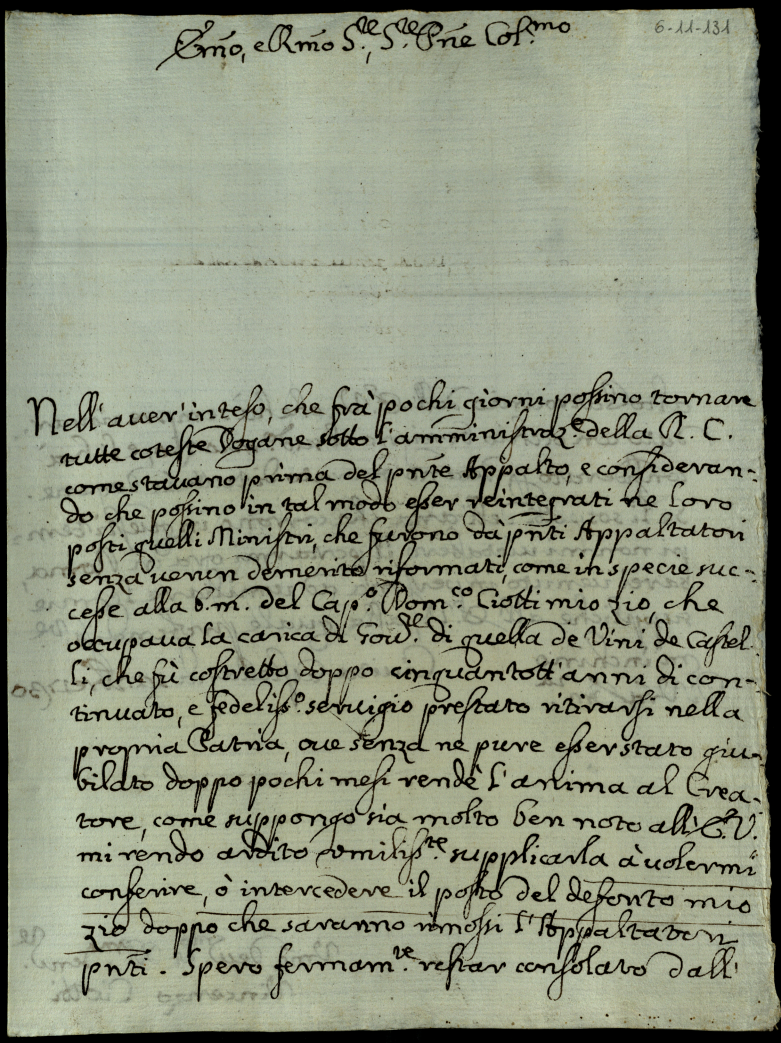 6-11-131
Em̃o, e Rm̃o S.re, S.re Pñe Col.mo
Nell'auer'inteso, che frà pochi giorni possino tornare
tutte coteste Dogane sotto l'amministraz.e della R. C.
come stauano prima del pñte Appalto, e consideran-
do che possino in tal modo esser reintegrati ne loro
posti quelli Ministri, che furono da pñti Appaltatori
senza uerun demerito riformati, come in specie suc-
cesse alla b. m. del Cap.o Dom.co Ciotti mio zio, che
occupaua la carica di di quella de Vini de Castel-
li, che fù costretto doppo cinquantott'anni di con-
tinuato, e fedeliss.o seruigio prestato ritirarsi nella
propria Patria, oue senza ne pure esser stato giu-
bilato doppo pochi mesi rendè l'anima al Crea-
tore, come suppongo sia molto ben noto all'E. V.
mi rendo ardito umiliss.te supplicarla à uolermi
conferire, ò intercedere il posto del defonto mio
zio doppo che saranno rimossi l'Appaltatori
pñti. Spero fermam.te restar consolato dall'